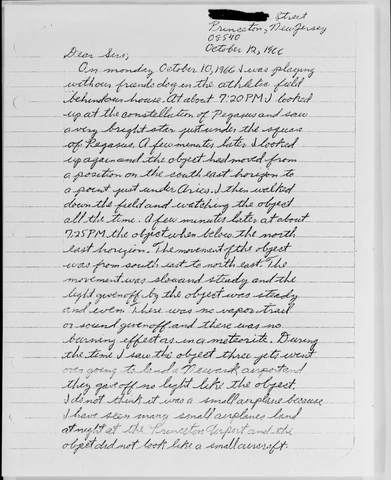 Street
Princeton, New Jersey
08540
October 12, 1966
Dear Sirs;
On monday October 10, 1966 I was playing
with our friends dog in the athletic field
behind our house. At about 7:20 PM I looked
up at the constellation of Pegasus and saw
a very bright star just under the square
of Pegasus. A few minutes later I looked
up again and the object had moved from
a position on the south east horizon to
a point just under Aries. I then walked
down the field and watching the object
all the time. A few minutes later at about
7:25 PM the object when below the north
east horizon. The movement of the object
was from south east to north east. The
movement was slow and steady and the
light given off by the object was steady
and even. There was no vapor trail
or sound given off and there was no
burning effect as in a meteorite. During
the time I saw the object three jets went
over going to land a Newark airport and
they gave off no light like the object
I do not think it was a small airplane because
I have seen many small airplanes land
at night at the Princeton Airport and the
object did not look like a small aircraft.